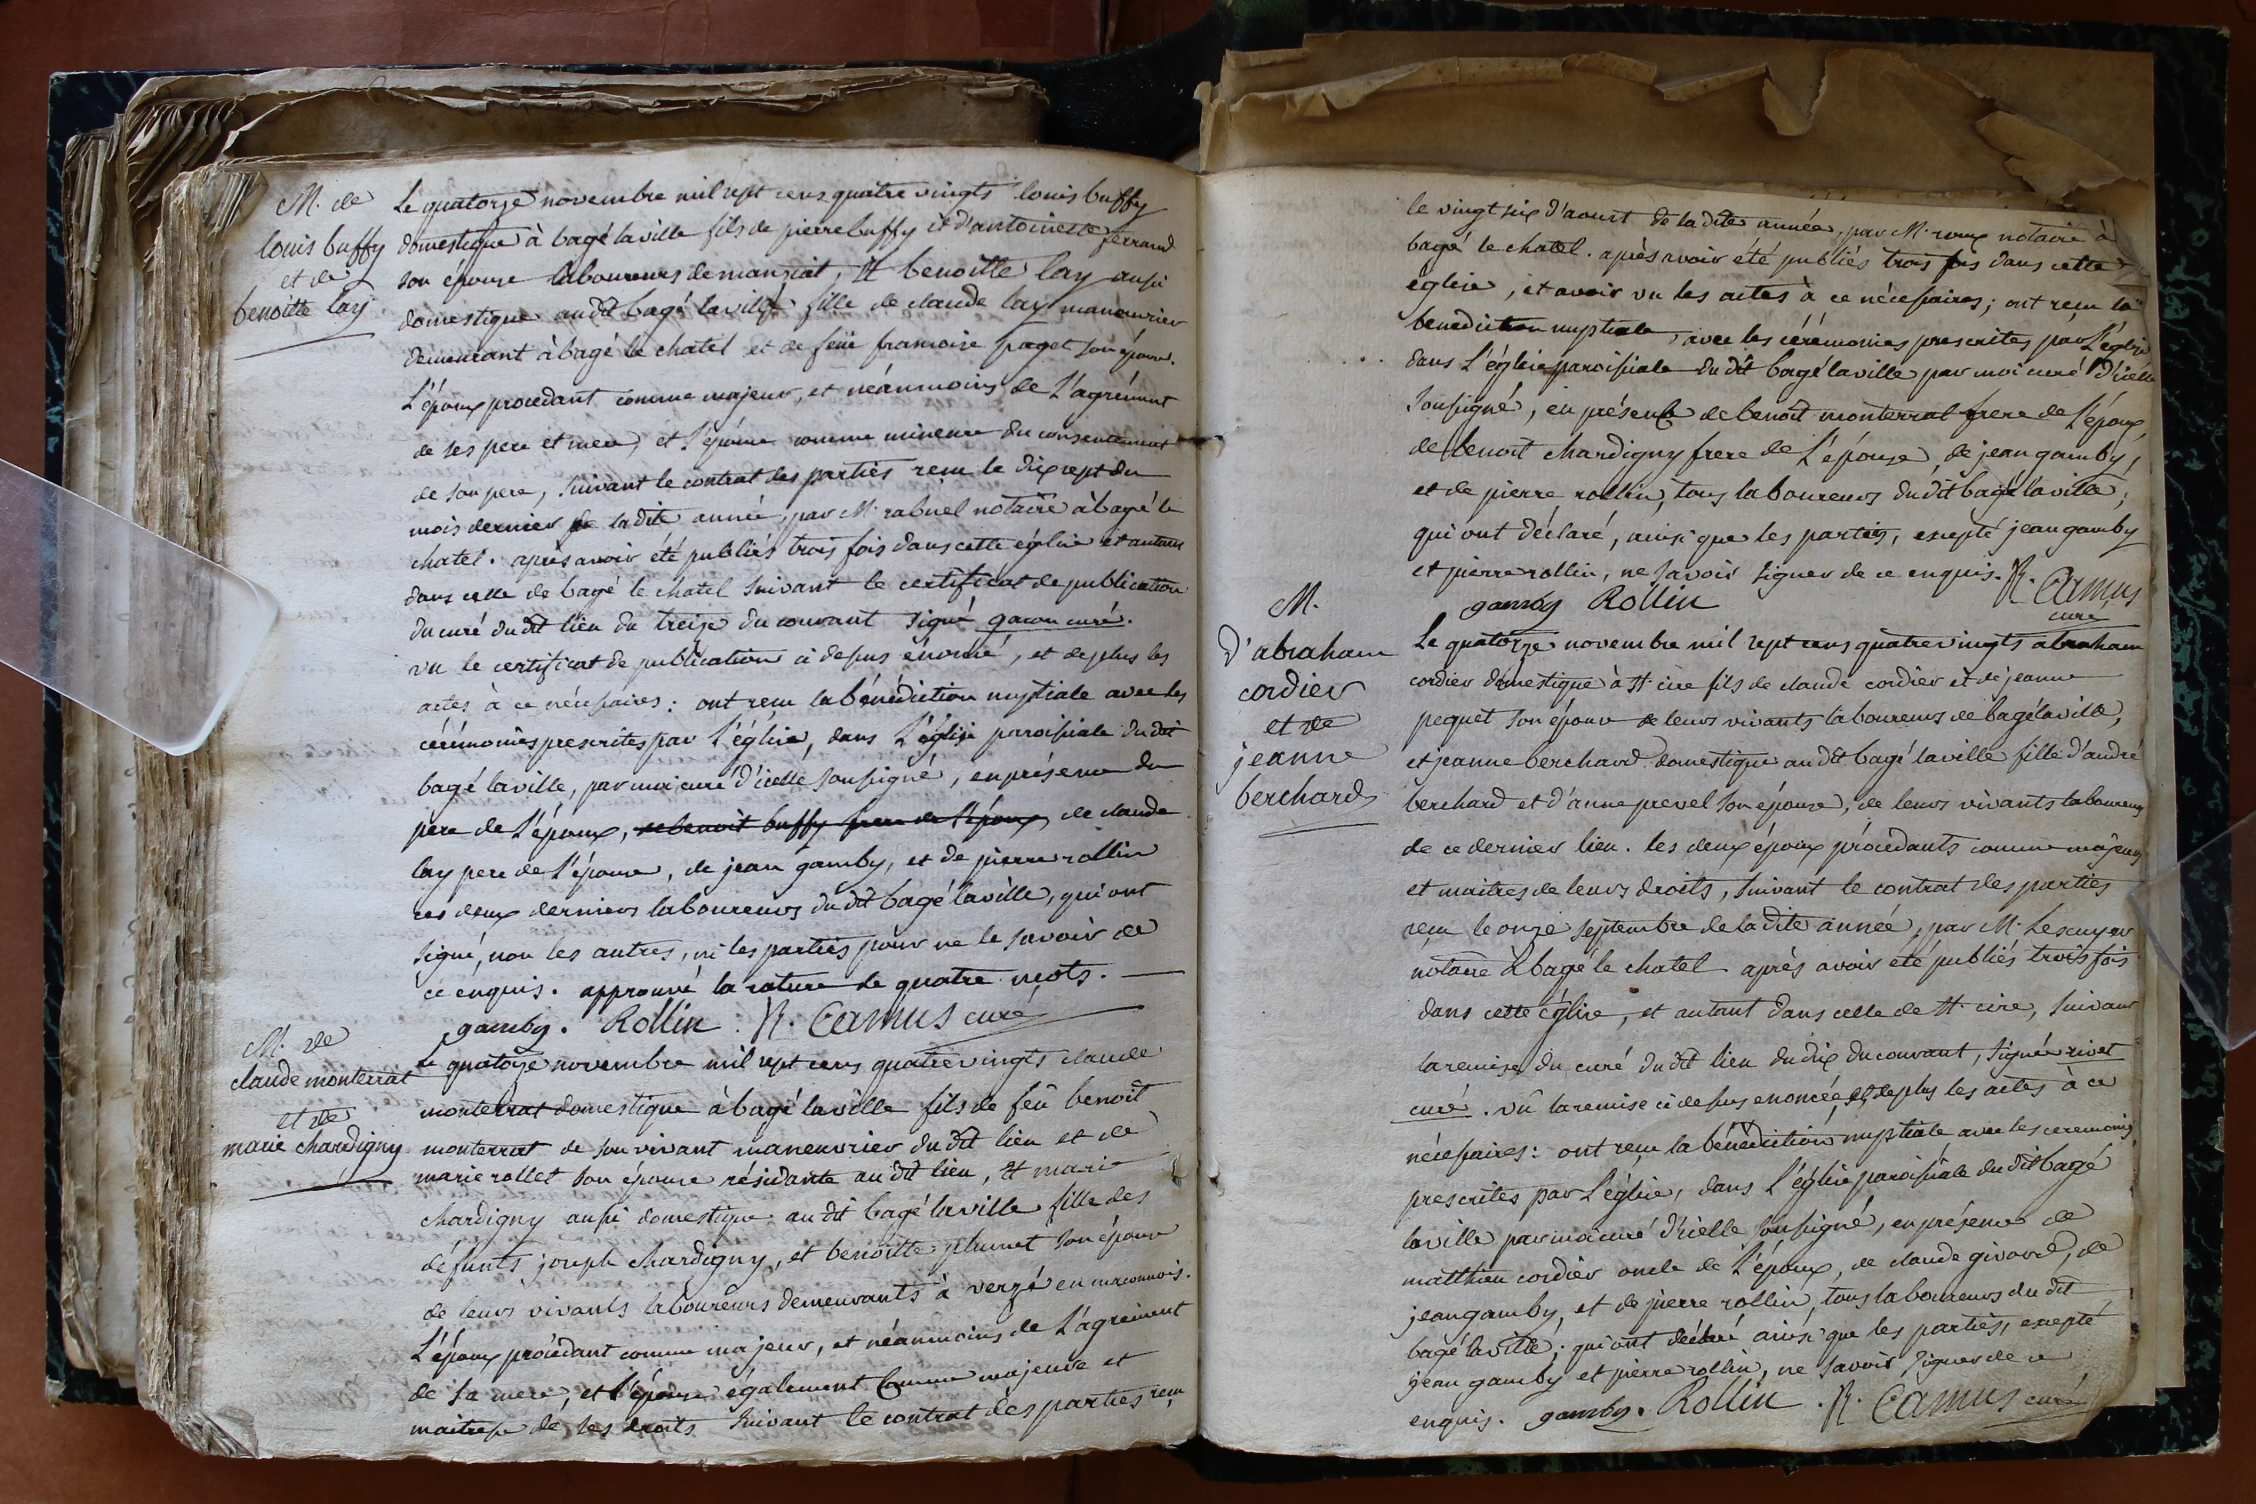 M. de
louis buffy
et de
benoitte lay
Le quatorze novembre mil sept cens quatre vingts louis buffy
domestique à bagé la ville fils de pierre buffy et d'antoinette ferrand
son epouse laboureurs de manziat, et benoitte lay aussi
domestique au dit bagé la ville fille de claude lay manouvrier
demeurant à bagé le chatel et de feüe francoise paget son épouse.
L'époux procédant comme majeur, et néanmoins de L'agrément
de ses pere et mere, et L'épouse comme mineure du consentement
de son pere, suivant le contrat des parties reçu le dix sept du
mois dernier de la dite année, par M. rabuel notaire à bagé le
chatel. après avoir été publiés trois fois dans cette église et autant
dans celle de bagé le chatel suivant le certificat de publication
du curé du dit lieu du treize du courant signé gacon curé.
vu le certificat de publication ci dessus énoncé, et de plus les
actes à ce nécessaires: ont reçu la bénédiction nuptiale avec les
cérémonies prescrites par L'église, dans L'église paroissiale du dit
bagé la ville, par moi curé d'icelle soussigné, en présence du
pere de L'époux, de benoit buffy frere de l'époux, de claude
lay pere de L'épouse, de jean gamby, et de pierre rollin
ces deux derniers laboureurs du dit bagé la ville, qui ont
signé, non les autres, ni les parties pour ne le savoir de
ce enquis. approuvé la rature de quatre mots.
gamby. Rollin. R. Camus curé
M. de
claude monterrat
et de
marie chardigny
Le quatorze novembre mil sept cens quatre vingts claude
monterrat domestique à bagé la ville fils de feü benoit
monterrat de son vivant maneuvrier du dit lieu et de
marie rollet son épouse résidante au dit lieu, et marie
chardigny aussi domestique au dit bagé la ville fille des
défunts joseph chardigny, et benoitte plumet son épouse
de leurs vivants laboureurs demeurants à verzé en maconnois.
L'époux procédant comme majeur, et néanmoins de L'agrément
de sa mere, et l'épouse également comme majeure et
maitresse de ses droits suivant le contrat des parties reçu
le vingt six d'aoust de la dite année, par M. roux notaire à
bagé le chatel. après avoir été publiés trois fois dans cette
église, et avoir vu les actes à ce nécessaires; ont reçu la
benediction nuptiale, avec les cérémonies prescrites par L'église
dans L'église paroissiale du dit bagé la ville par moi curé d'icelle
soussigné, en présence de benoit monterrat frere de L'époux,
de benoit chardigny frere de L'épouse, de jean gamby,
et de pierre rollin, tous laboureurs du dit bagé la ville;
qui ont déclaré, ainsi que les parties, excepté jean gamby
et pierre rollin, ne savoir signer de ce enquis. R. Camus
gamby Rollin curé
M.
d'abraham
cordier
et de
jeanne
berchard
Le quatorze novembre mil sept cens quatre vingts abraham
cordier domestique à St cire fils de claude cordier et de jeanne
pequet son épouse de leurs vivants laboureurs de bagé la ville,
et jeanne berchard domestique au dit bagé la ville fille d'andré
berchard et d'anne prevel son épouse, de leurs vivants laboureurs
de ce dernier lieu. les deux époux procédants comme majeurs
et maitres de leurs droits, suivant le contrat des parties
reçu le onze septembre de la dite année, par M. Lescuyer
notaire à bagé le chatel après avoir été publiés trois fois
dans cette église, et autant dans celle de St cire, suivant
la remise du curé du dit lieu du dix du courant, signée rivet
curé. vû la remise ci dessus enoncée, et de plus les actes à ce
nécessaires: ont reçu la bénédiction nuptiale avec les ceremonies
prescrites par L'église, dans L'église paroissiale du dit bagé
la ville par moi curé d'icelle soussigné, en présence de
matthieu cordier oncle de L'époux, de claude givord, de
jean gamby, et de pierre rollin, tous laboureurs du dit
bagé la ville; qui ont déclaré ainsi que les parties, excepté
jean gamby et pierre rollin, ne savoir signer de ce
enquis. gamby. Rollin. R. Camus curé